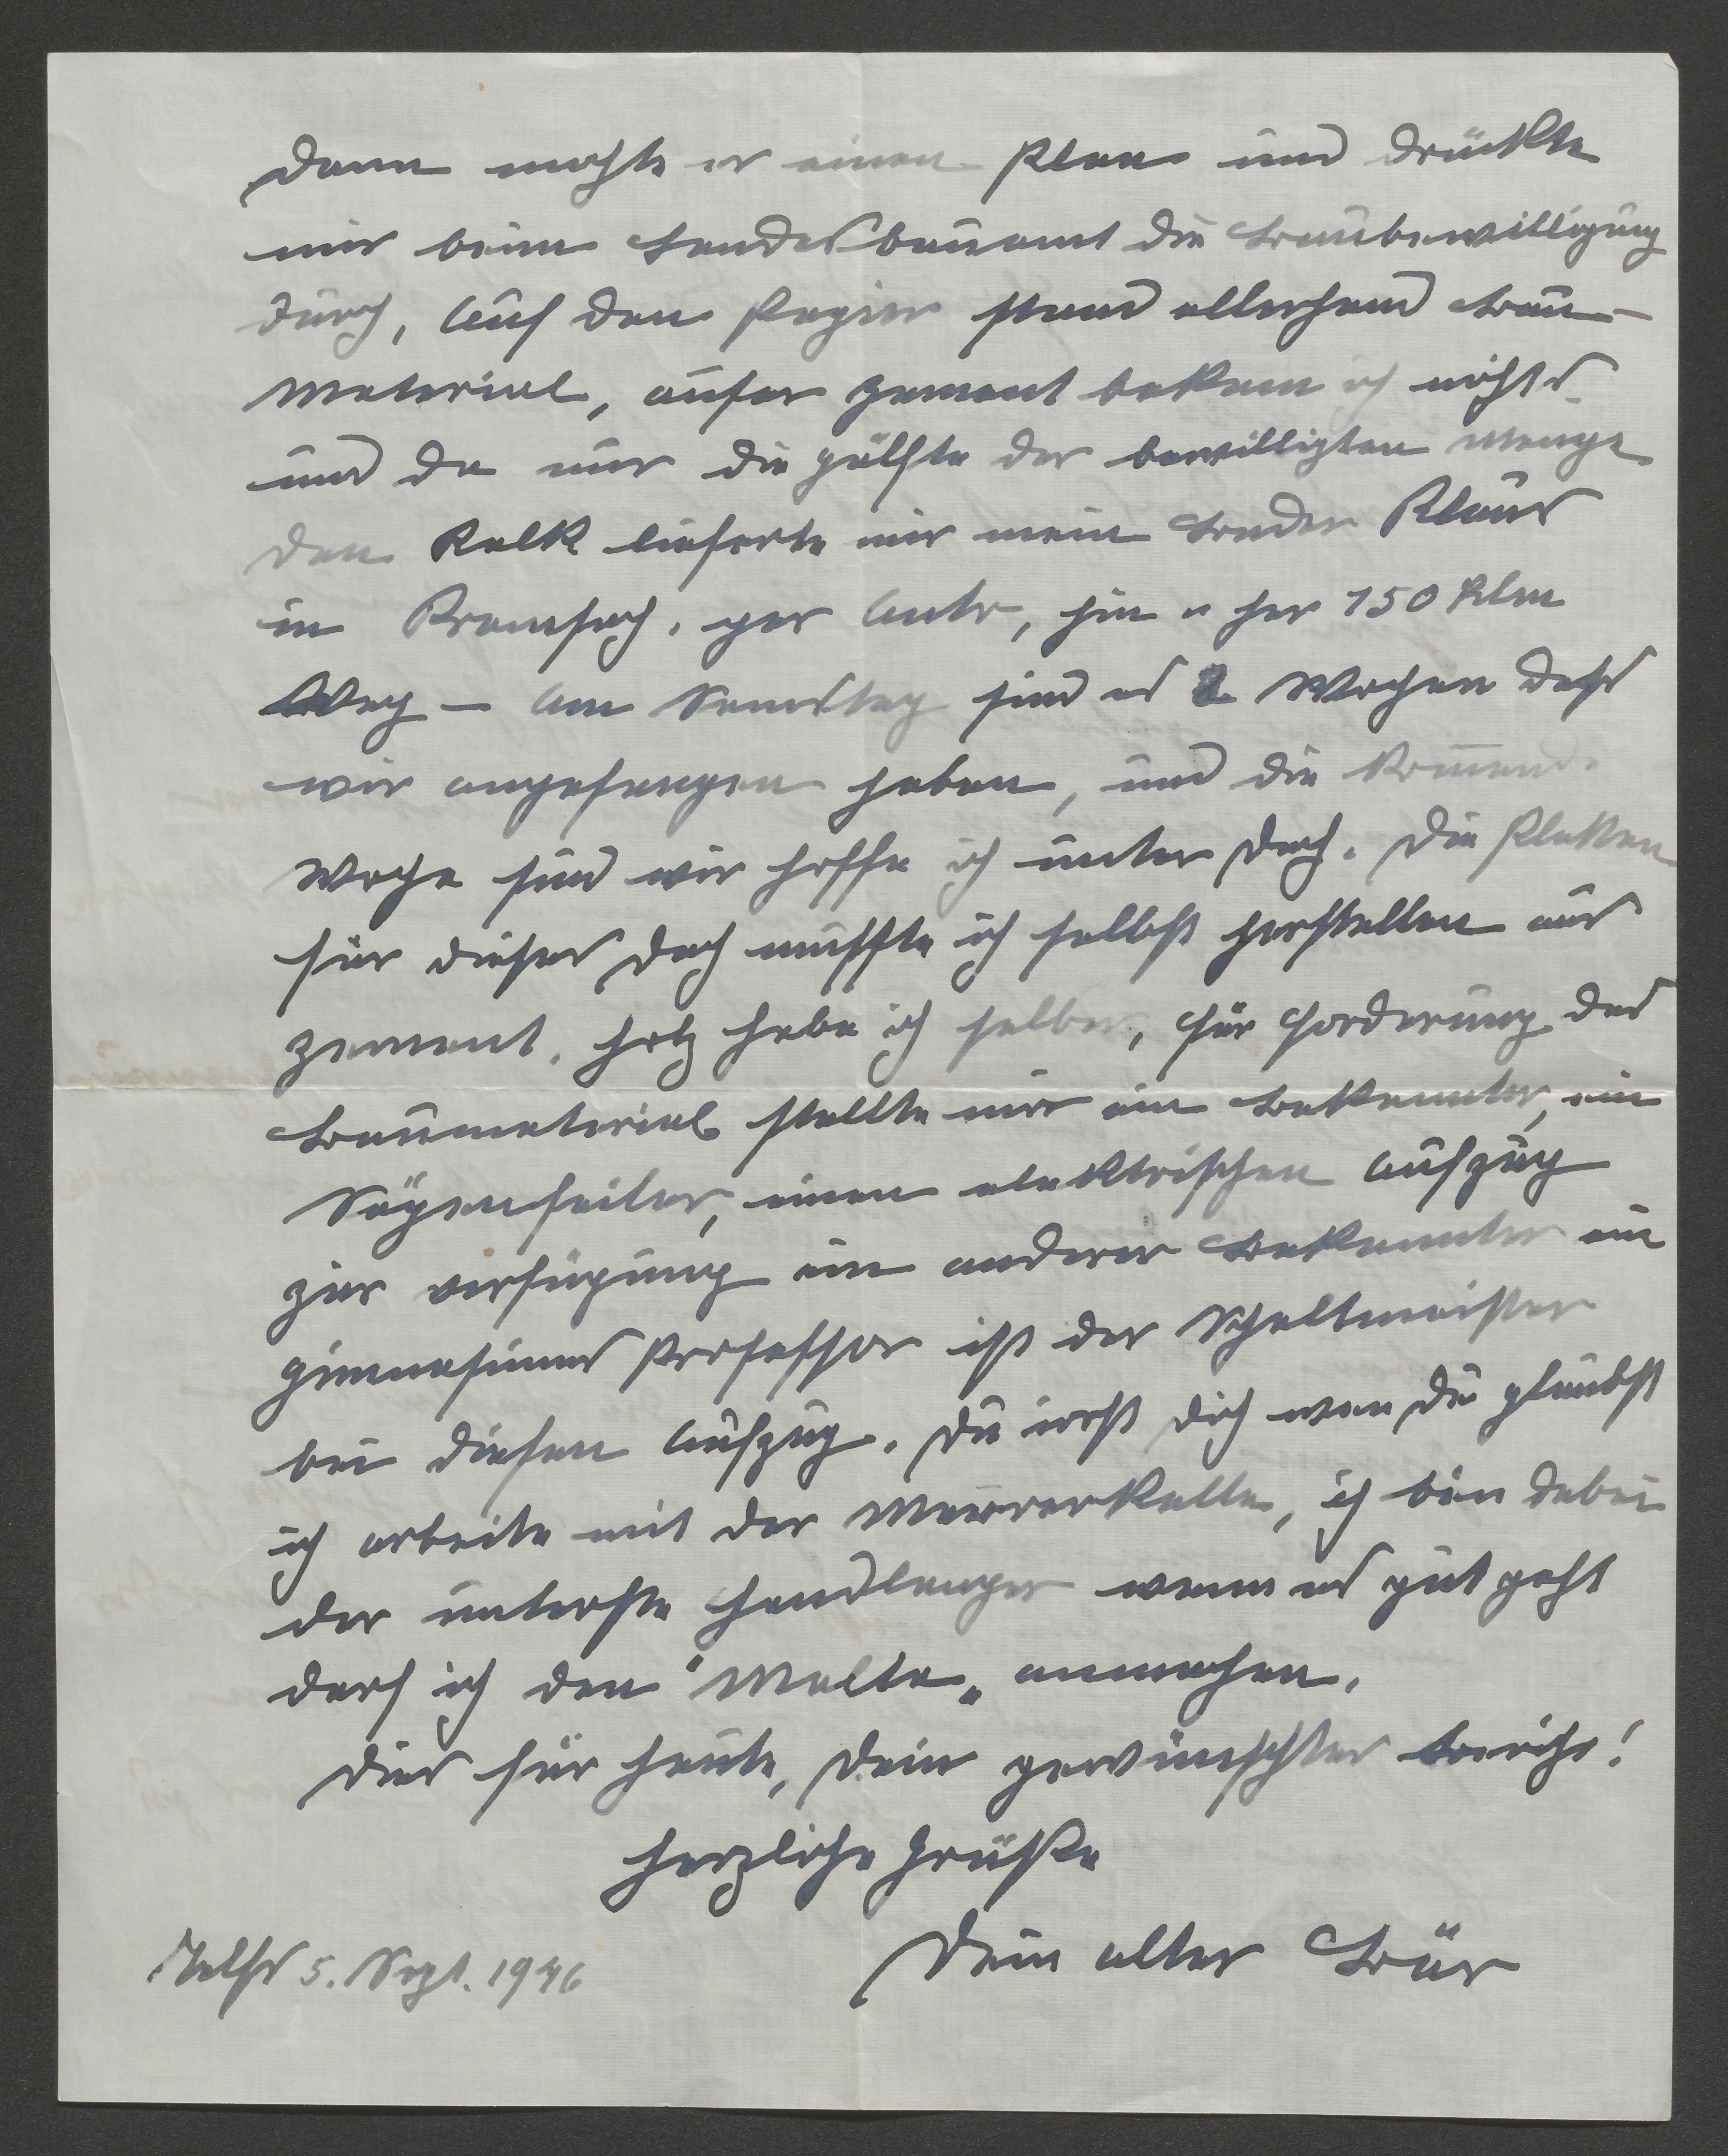 dann machte er einen Plan und drückte
mir beim Landesbauamt die Baubewilligung
durch, auf den Papier stand allerhand Bau-
material, außer Zement bekam ich nichts
und da nur die Hälfte der bewilligten Menge
den Kalk lieferte mir mein Bruder Klaus
in Kramsach, per Auto, hin u her 150 Klm
Weg – Am Samstag sind es 2 Wochen dass
wir angefangen haben, und die kommend.
Woche sind wir hoffe ich unter Dach. Die Platten
für dieses Dach musste ich selbst herstellen aus
Zement, Holz habe ich selber, für Forderung des
Baumaterial stellte mir ein Bekannter, ein
Sägenfeiler, einen elektrischen Aufzug
zur verfügung ein anderer Bekannter ein
Gimnasiums Professor ist der Schaltmeister
bei diesen Aufzug. Du irrst dich wen Du glaubst
ich arbeite mit der Maurerkelle, ich bin dabei
der unterste Handlanger wenn es gut geht
darf ich den "Malta" anmachen.
Dies für heute, Dein gewünschter Bericht!
Herzliche Grüße
Dein alter Bär
Telfs 5. Sept. 1946